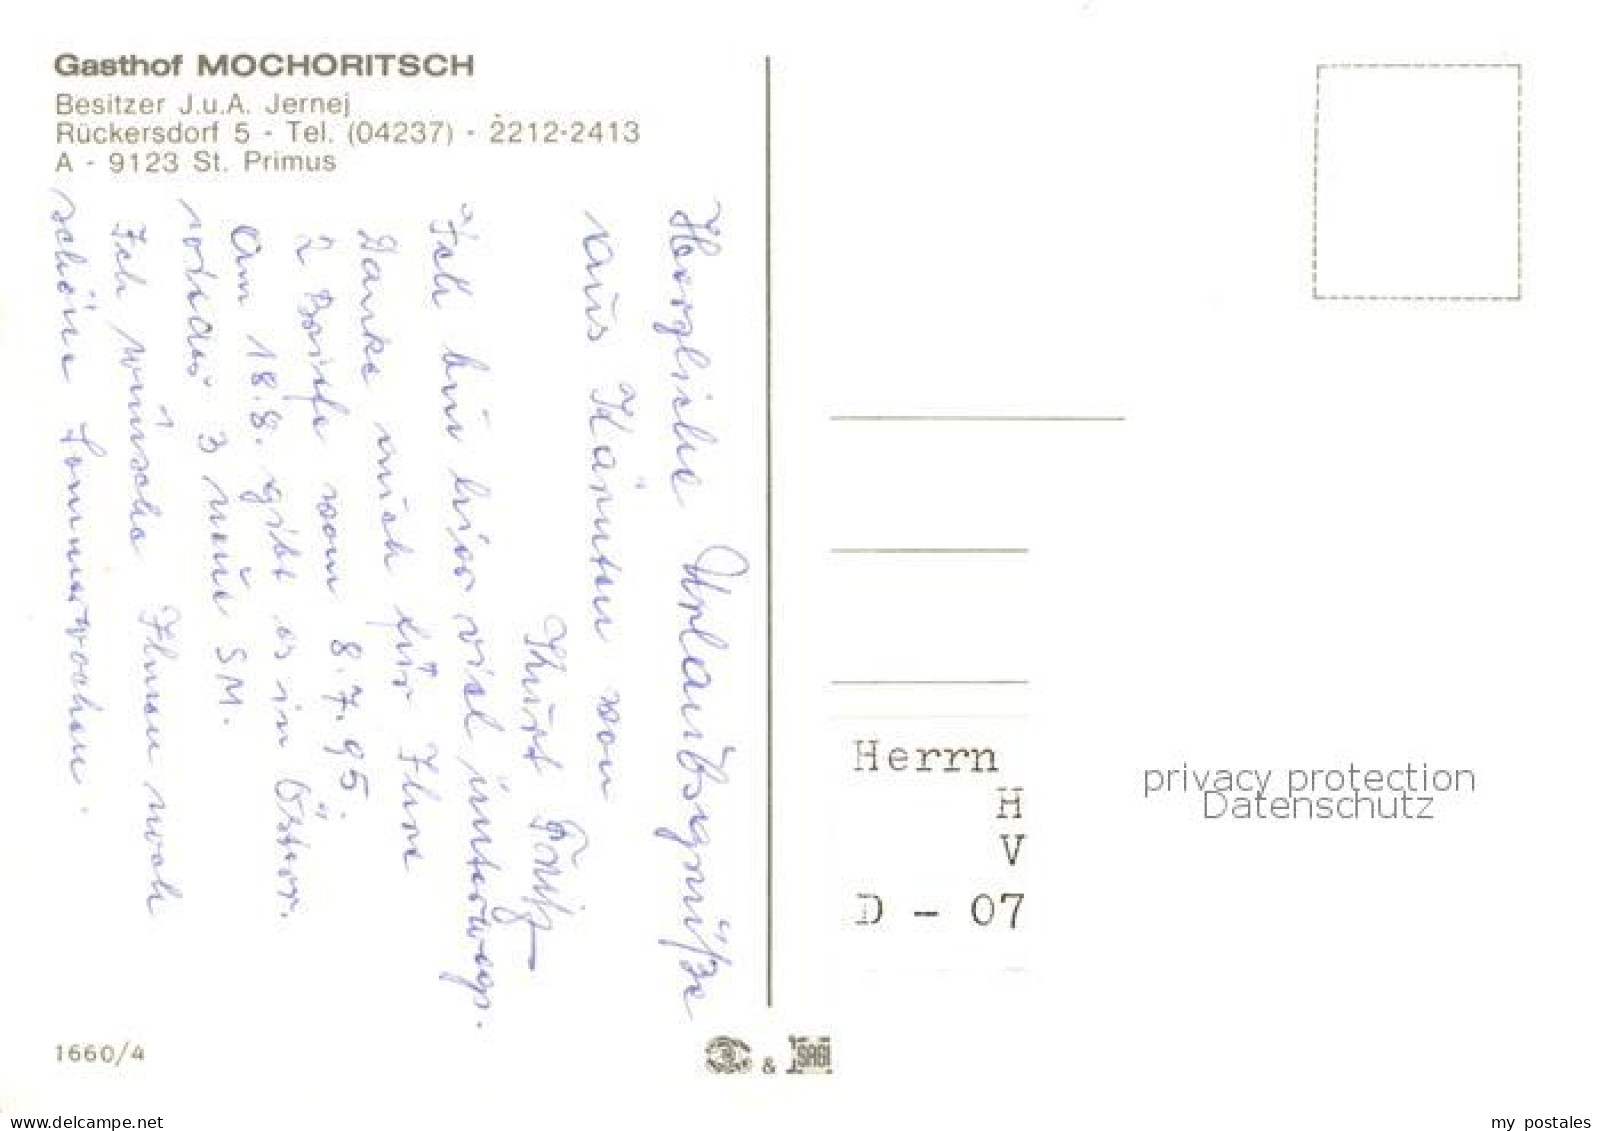 Gasthof MOCHORITSCH
Besitzer J.u.A. Jernej
Rückersdorf 5 - Tel. (04237) - 2212-2413
A - 9123 St. Primus
Herzliche Urlaubsgrüße
aus Kärnten von
Ich bin hier viel unterwegs.
Danke auch für Ihre
2 Briefe vom 8.7.95.
Am 18.8. gibt es in Österr.
3 neue SM.
Ich wünsche Ihnen noch
schöne Sommerwochen.
Herrn
H
V
D - 07
privacy protection
Datenschutz
1660/4
& SAGI
delcampe.net
my_postales